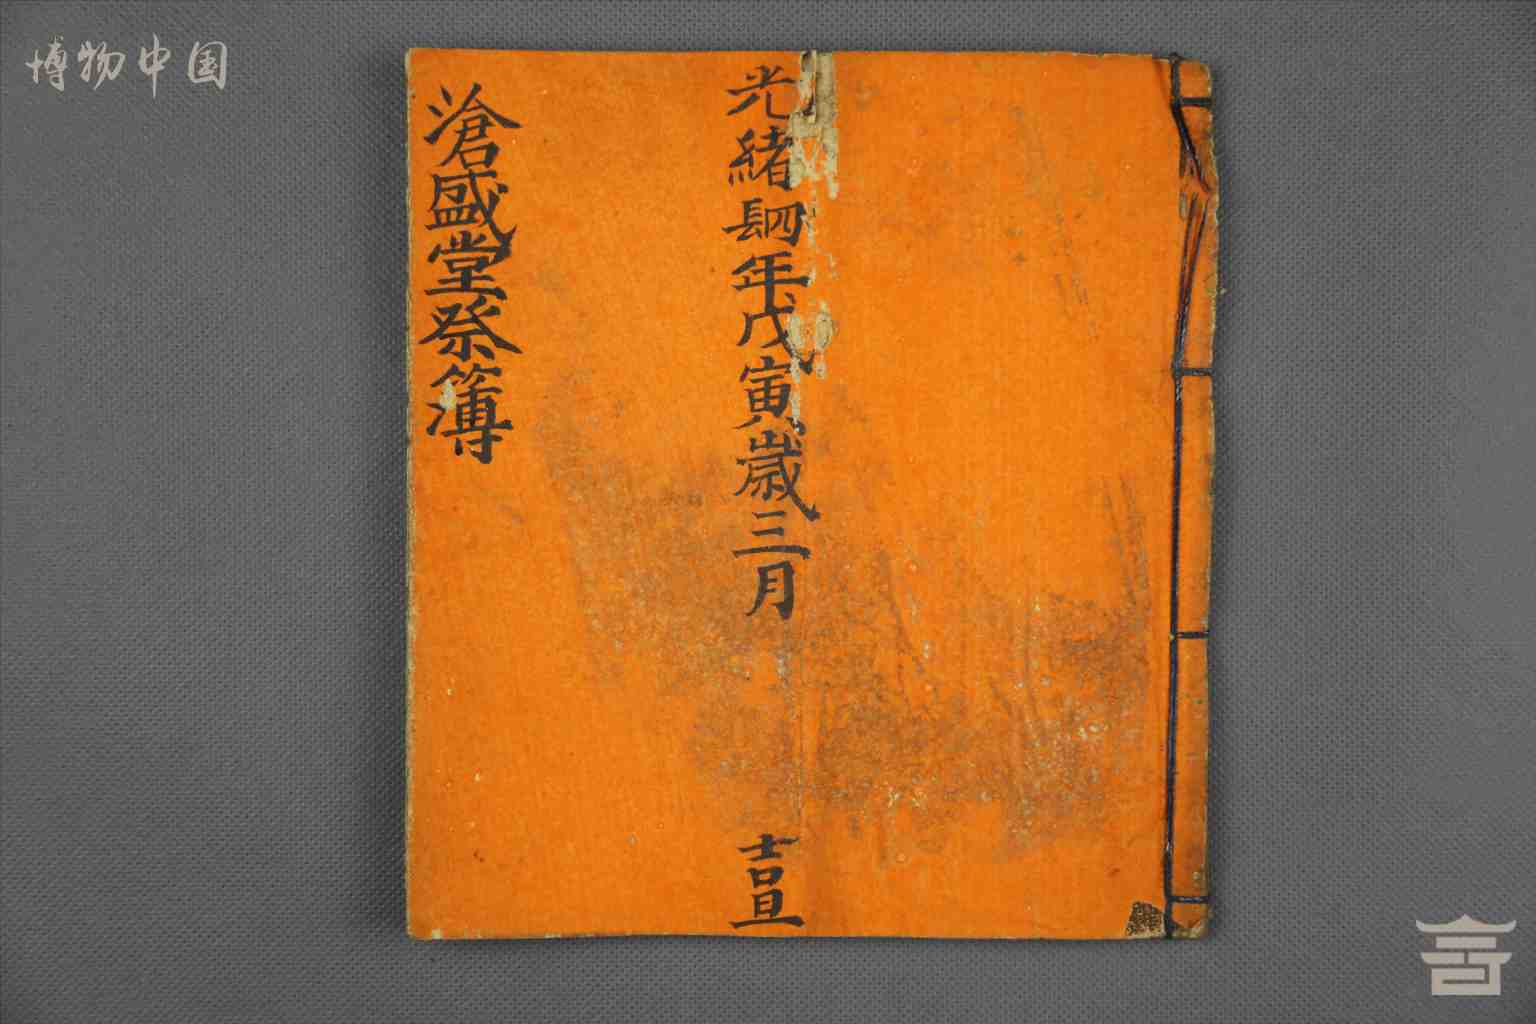 博物中国
光緒肆年戊寅歲三月
滄盛堂祭簿